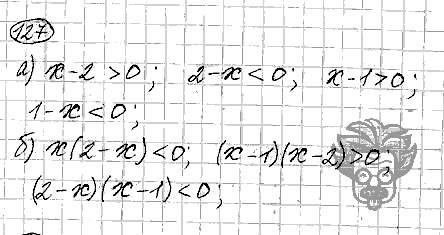 127
а) x-2>0; 2-x<0; x-1>0;
1-x<0;
б) x(2-x)<0; (x-1)(x-2)>0;
(2-x)(x-1)<0;